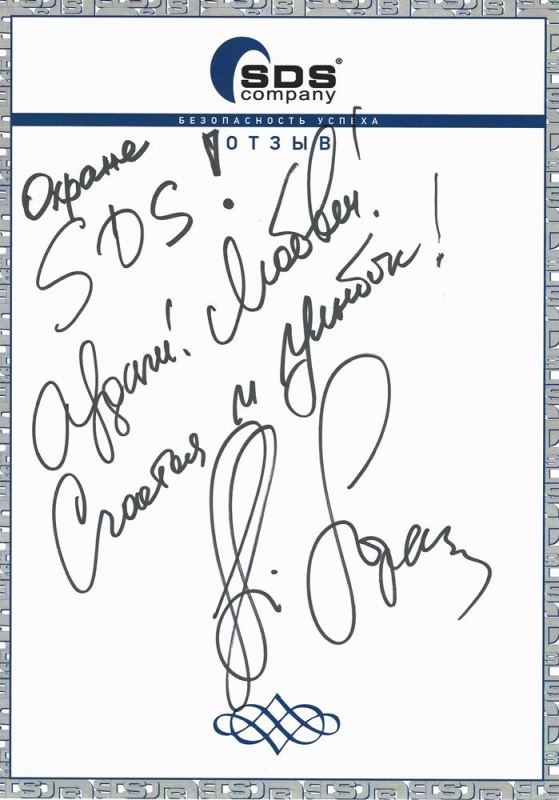 SDS®
company
БЕЗОПАСНОСТЬ УСПЕХА
ОТЗЫВ
Охране
SDS!
Удачи! Любви!
Счастья и улыбок!